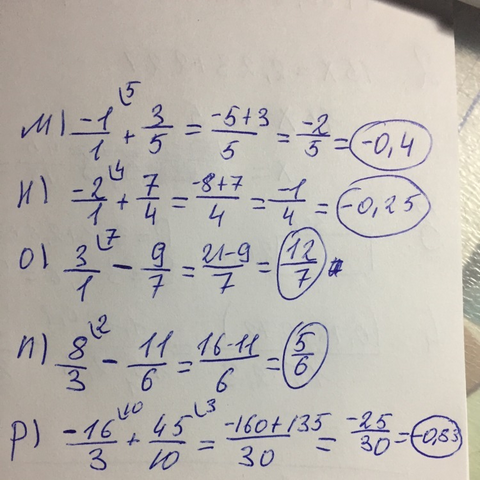 М) -1/1 \5 + 3/5 = -5+3/5 = -2/5 = -0,4
Н) -2/1 \4 + 7/4 = -8+7/4 = -1/4 = -0,25
О) 3/1 \7 - 9/7 = 21-9/7 = 12/7
П) 8/3 \2 - 11/6 = 16-11/6 = 5/6
Р) -16/3 \10 + 45/10 \3 = -160+135/30 = -25/30 = -0,83